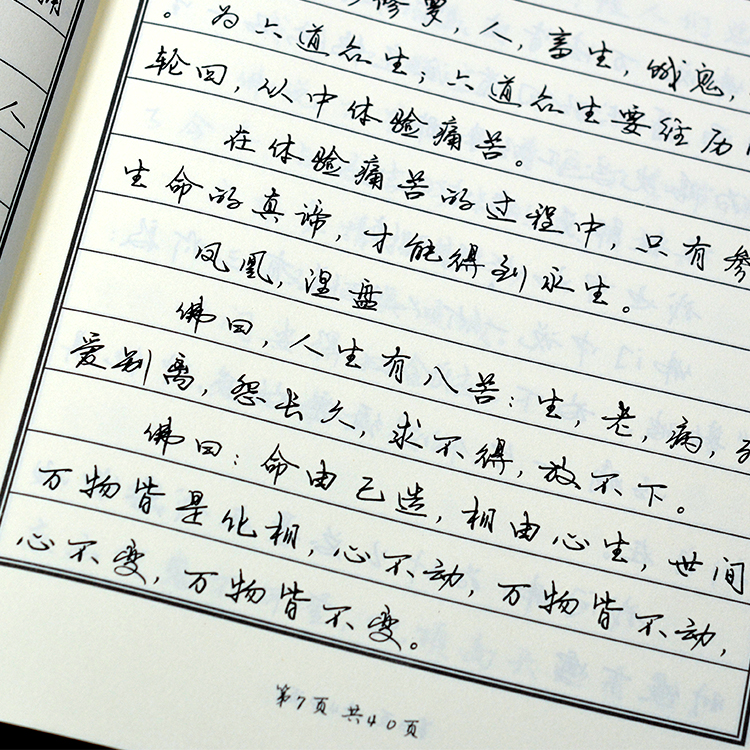 人
修，人，畜生，饿鬼，
。为六道众生；六道众生要经历
轮回，从中体验痛苦。
在体验痛苦的过程中，只有参
生命的真谛，才能得到永生。
凤凰，涅盘
佛曰，人生有八苦：生，老，病，
爱别离，怨长久，求不得，放不下。
佛曰：命由己造，相由心生，世间
万物皆是化相，心不动，万物皆不动，
心不变，万物皆不变。
第7页 共40页